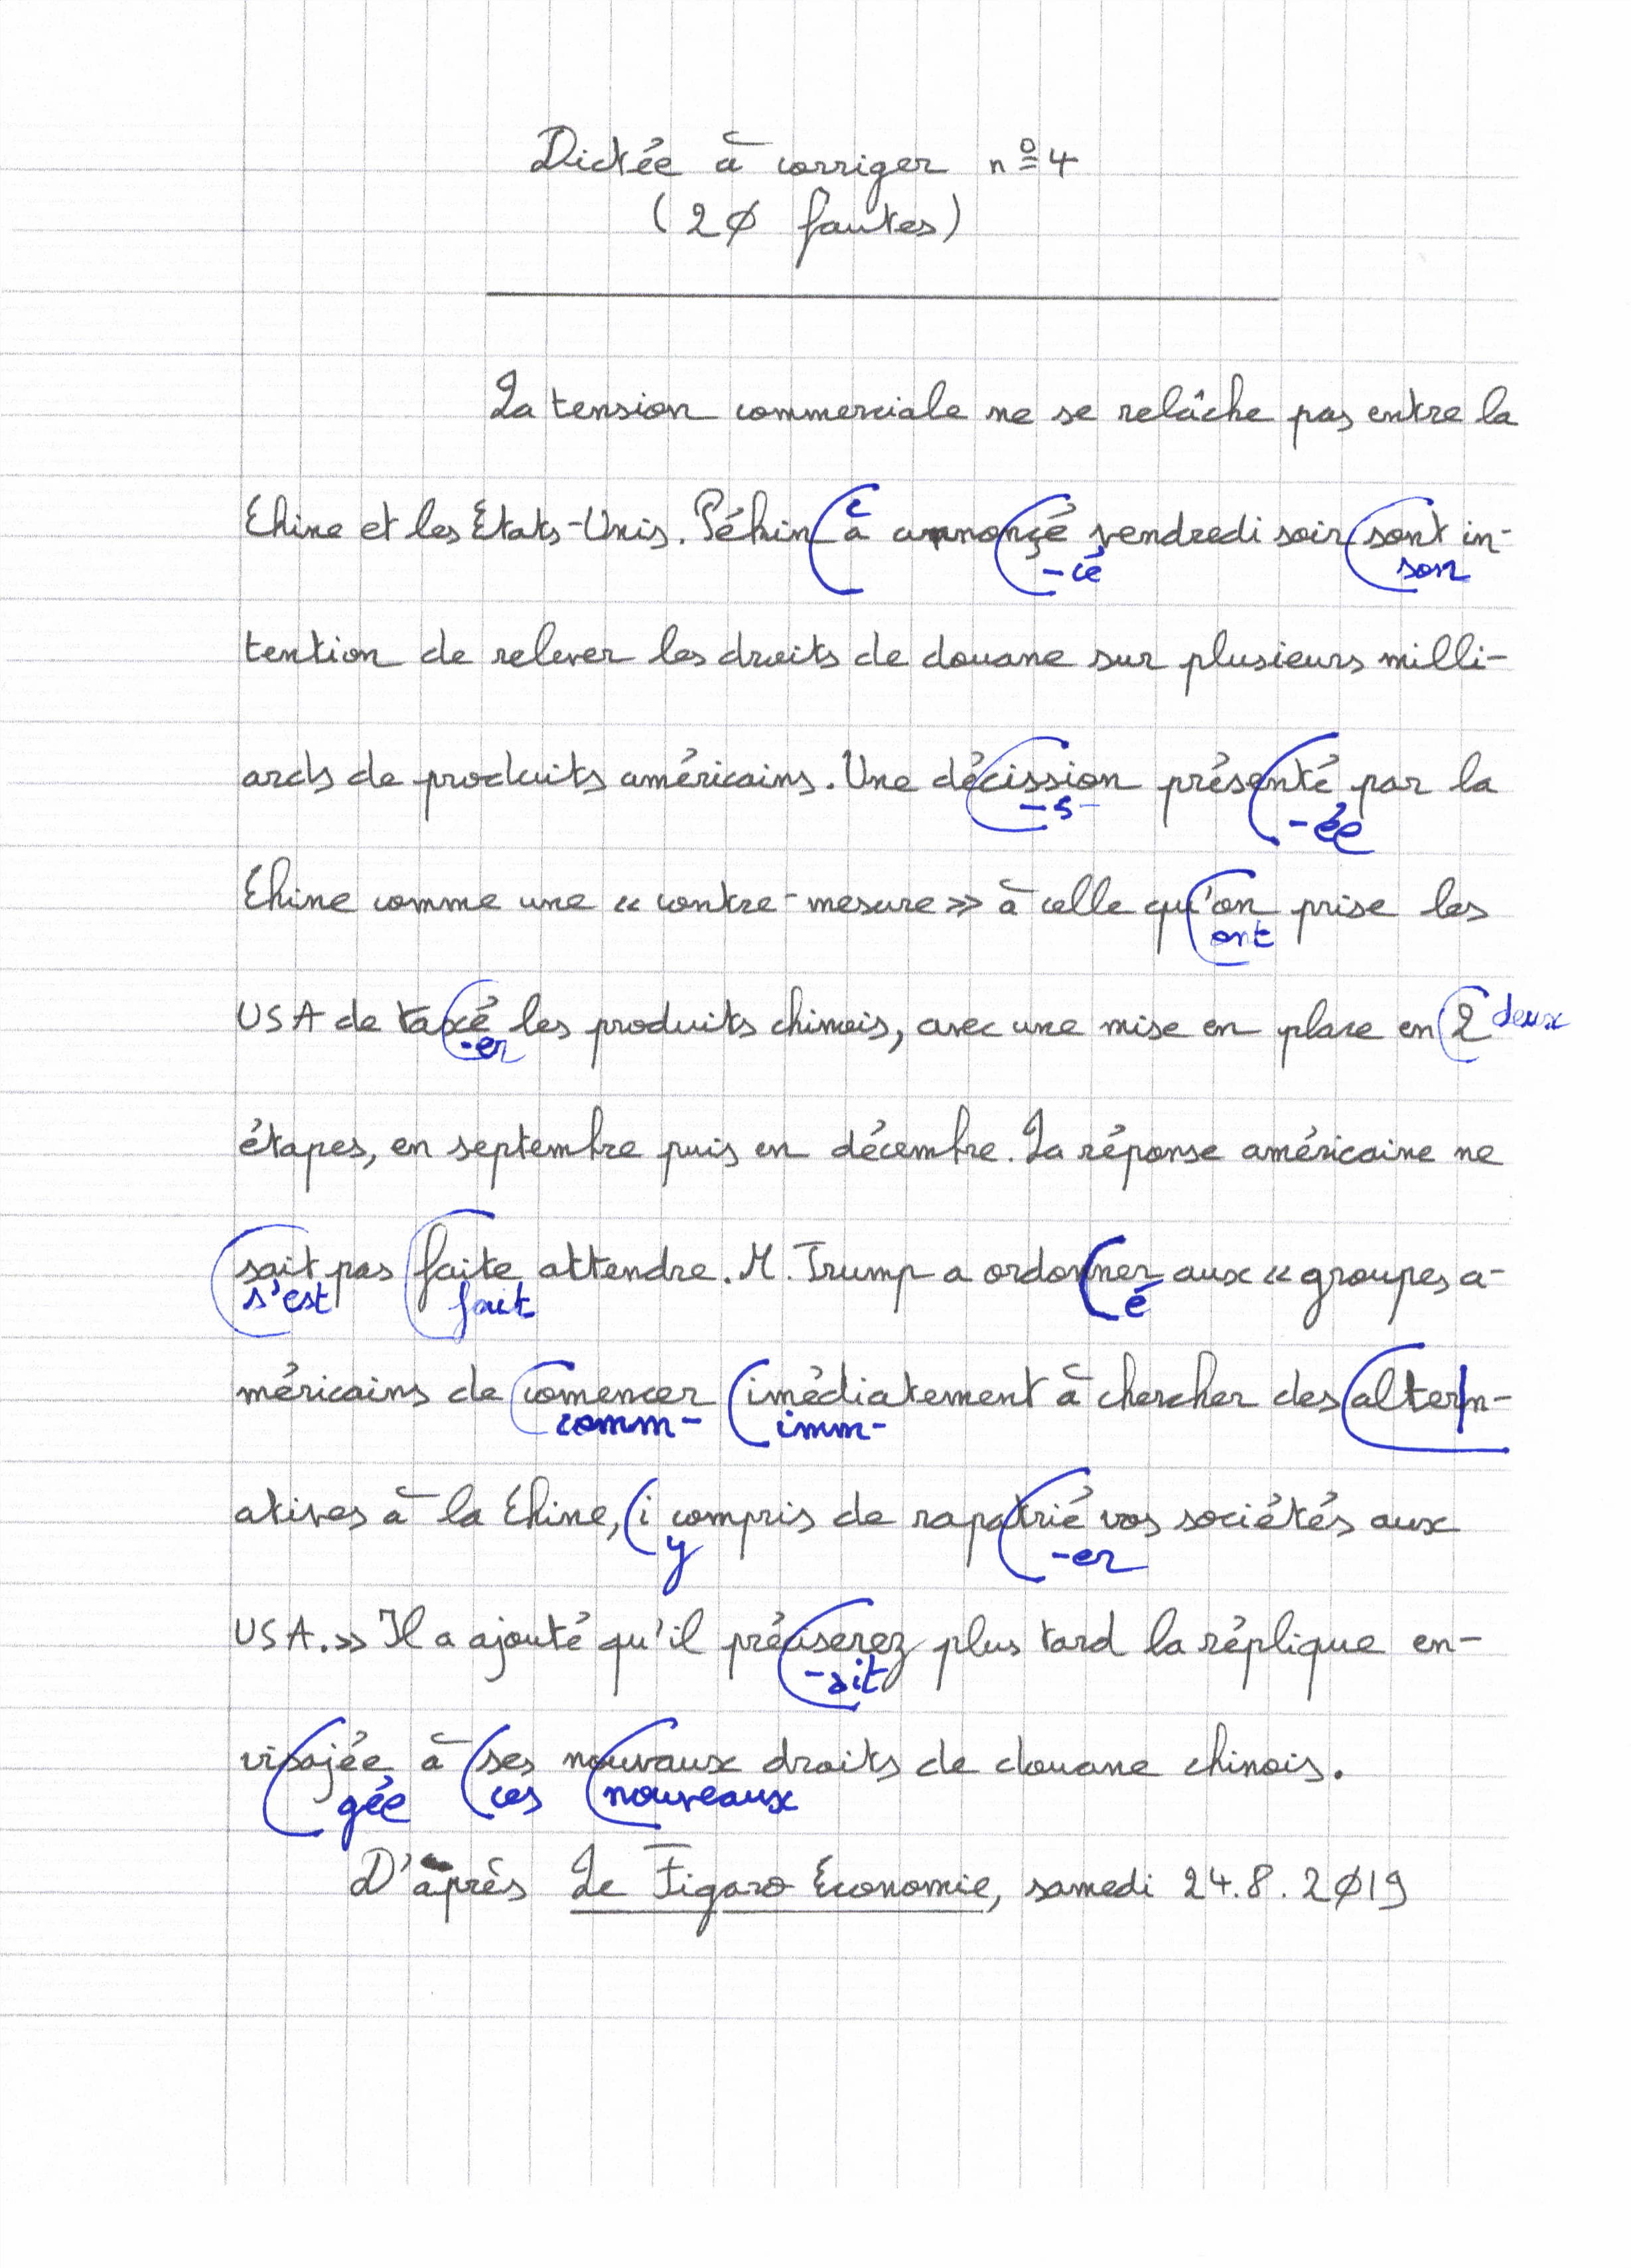 Dictée à corriger nº4
(20 fautes)
La tension commerciale ne se relâche pas entre la
Chine et les États-Unis. Pékin à annonçé vendredi soir sont in-
-cé son
tention de relever les droits de douane sur plusieurs milli-
ards de produits américains. Une décission présenté par la
-s- -ée
Chine comme une « contre-mesure » à celle qu'on prise les
ont
USA de taxé les produits chinois, avec une mise en place en 2 deux
-er
étapes, en septembre puis en décembre. La réponse américaine ne
sait pas faite attendre. M. Trump a ordonner aux « groupes a-
s'est fait é
méricains de comencer imédiatement à chercher des altern-
comm- imm-
atives à la Chine, i compris de rapatrié vos sociétés aux
y -er
USA.» Il a ajouté qu'il préciserez plus tard la réplique en-
-ait
visajée à ses nouvaux droits de douane chinois.
gée ces nouveaux
D'après Le Figaro Économie, samedi 24.8.2019